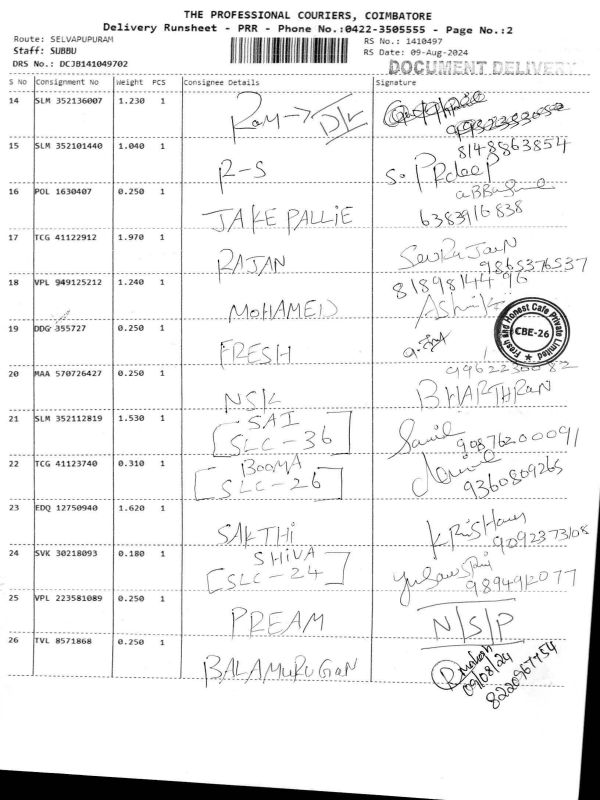 THE PROFESSIONAL COURIERS, COIMBATORE
Delivery Runsheet - PRR - Phone No.:0422-3505555 - Page No.:2
Route: SELVAPUPURAM
RS No.: 1410497
Staff: SUBBU
RS Date: 09-Aug-2024
DRS No.: DCJB141049702
DOCUMENT DELIVERY
S No Consignment No Weight PCS Consignee Details Signature
14 SLM 352136007 1.230 1
Ram → D/L
15 SLM 352101440 1.040 1 8148863854
R-S S. PRdeep
16 POL 1630407 0.250 1
JAKE PALLIE 6383916838
17 TCG 41122912 1.970 1
RAJAN 9865376537
18 VPL 949125212 1.240 1 8189814496
MOHAMED Ashik
19 DDG 355727 0.250 1
FRESH
Fresh and Honest Cafe Private Limited
CBE-26
20 MAA 570726427 0.250 1 9962230082
NSK BHARTHRAN
21 SLM 352112819 1.530 1 SAI
SLC-36 90876200091
22 TCG 41123740 0.310 1 BOOMA
SLC-26 9360809265
23 EDQ 12750940 1.620 1
SAKTHI 9092373108
24 SVK 30218093 0.180 1 SHIVA
SLC-24 9894912077
25 VPL 223581089 0.250 1
PREAM N/S/P
26 TVL 8571868 0.250 1
BALAMURUGAN 09/08/24
8220967754